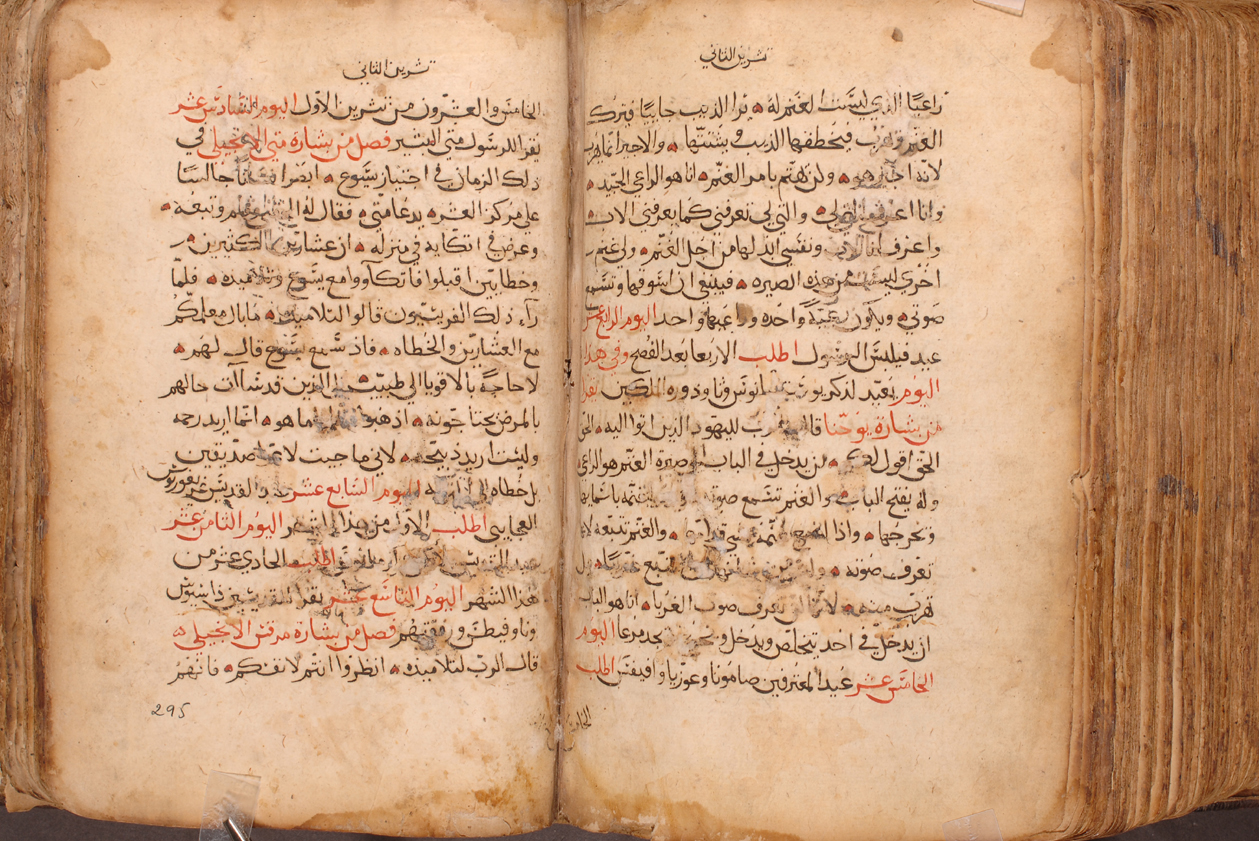 تشرين الثاني
راعيًا الذي ليست الغنم له يرا الذيب جاييًا فيترك
الغنم ويهرب فيخطفها الذيب ويشتتها والاجير انما يهرب
لانه اجير هو ولن يهتم بامر الغنم انا هو الراعي الجيد
وانا اعرف التي لي والتي لي تعرفني كما يعرفني الاب
واعرف انا الاب ونفسي ابذلها من اجل الغنم ولي غنم
اخري ليست من هذه الصيره فينبغي ان اسوقها وتسمع
صوتي وتكون رعيةً واحده وراعيها واحد اليوم الرابع عشر
عيد فيلبس الرسول اطلب الاربعا بعد الفصح وفي هذا
اليوم يعيد لذكر
من بشارة يوحنا قال الرب لليهود الذين اتوا اليه الحق
الحق اقول لكم من يدخل في الباب الي صيرة الغنم هو الراعي
وله يفتح البواب والغنم تسمع صوته
وتخرجها واذا والغنم تتبعه لانها
تعرف صوته
تهرب منه لانها لن تعرف صوت الغربا انا هو الباب
ان يدخل في احد يتخلص ويدخل ويخرج ويجد مرعا اليوم
الخامس عشر عيد المعترفين صامونا وغوريا وافيفس اطلب
الخامس
تشرين الثاني
الخامس والعشرون من تشرين الاول اليوم السادس عشر
يقرا للرسول متي البشير فصل من بشارة متي الانجيلي في
ذلك الزمان في اجتياز يسوع ابصر انسانًا جالسًا
علي مركز العشر يدعا متي فقال له اتبعني فقام وتبعه
وعرض في اتكايه في منزله ان عشارين كثيرين
وخطايين اقبلوا فاتكاووا مع يسوع وتلاميذه فلما
رآء ذلك الفريسيون قالوا لتلاميذه ما بال معلمكم
مع العشارين والخطاه فاذ سمع يسوع قال لهم
لا حاجةً بالاقويا الي طبيب بل الذين قد شآات حالهم
بالمرض يحتاجونه اذهبوا ما هو انما اريد رحمه
وليست اريد ذبيحه لاني ما جيت لادعوا صديقين
بل خطاه الي التوبه اليوم السابع عشر عيد القديس غريغوريوس
العجايبي اطلب الاول من هذا الشهر اليوم الثامن عشر
عيد القديس اطلب الحادي عشر من
هذا الشهر اليوم التاسع عشر يقرا للقديسين
ورفقتهم فصل من بشارة مرقس الانجيلي
قال الرب لتلاميذه انظروا انتم لانفسكم فانهم
295